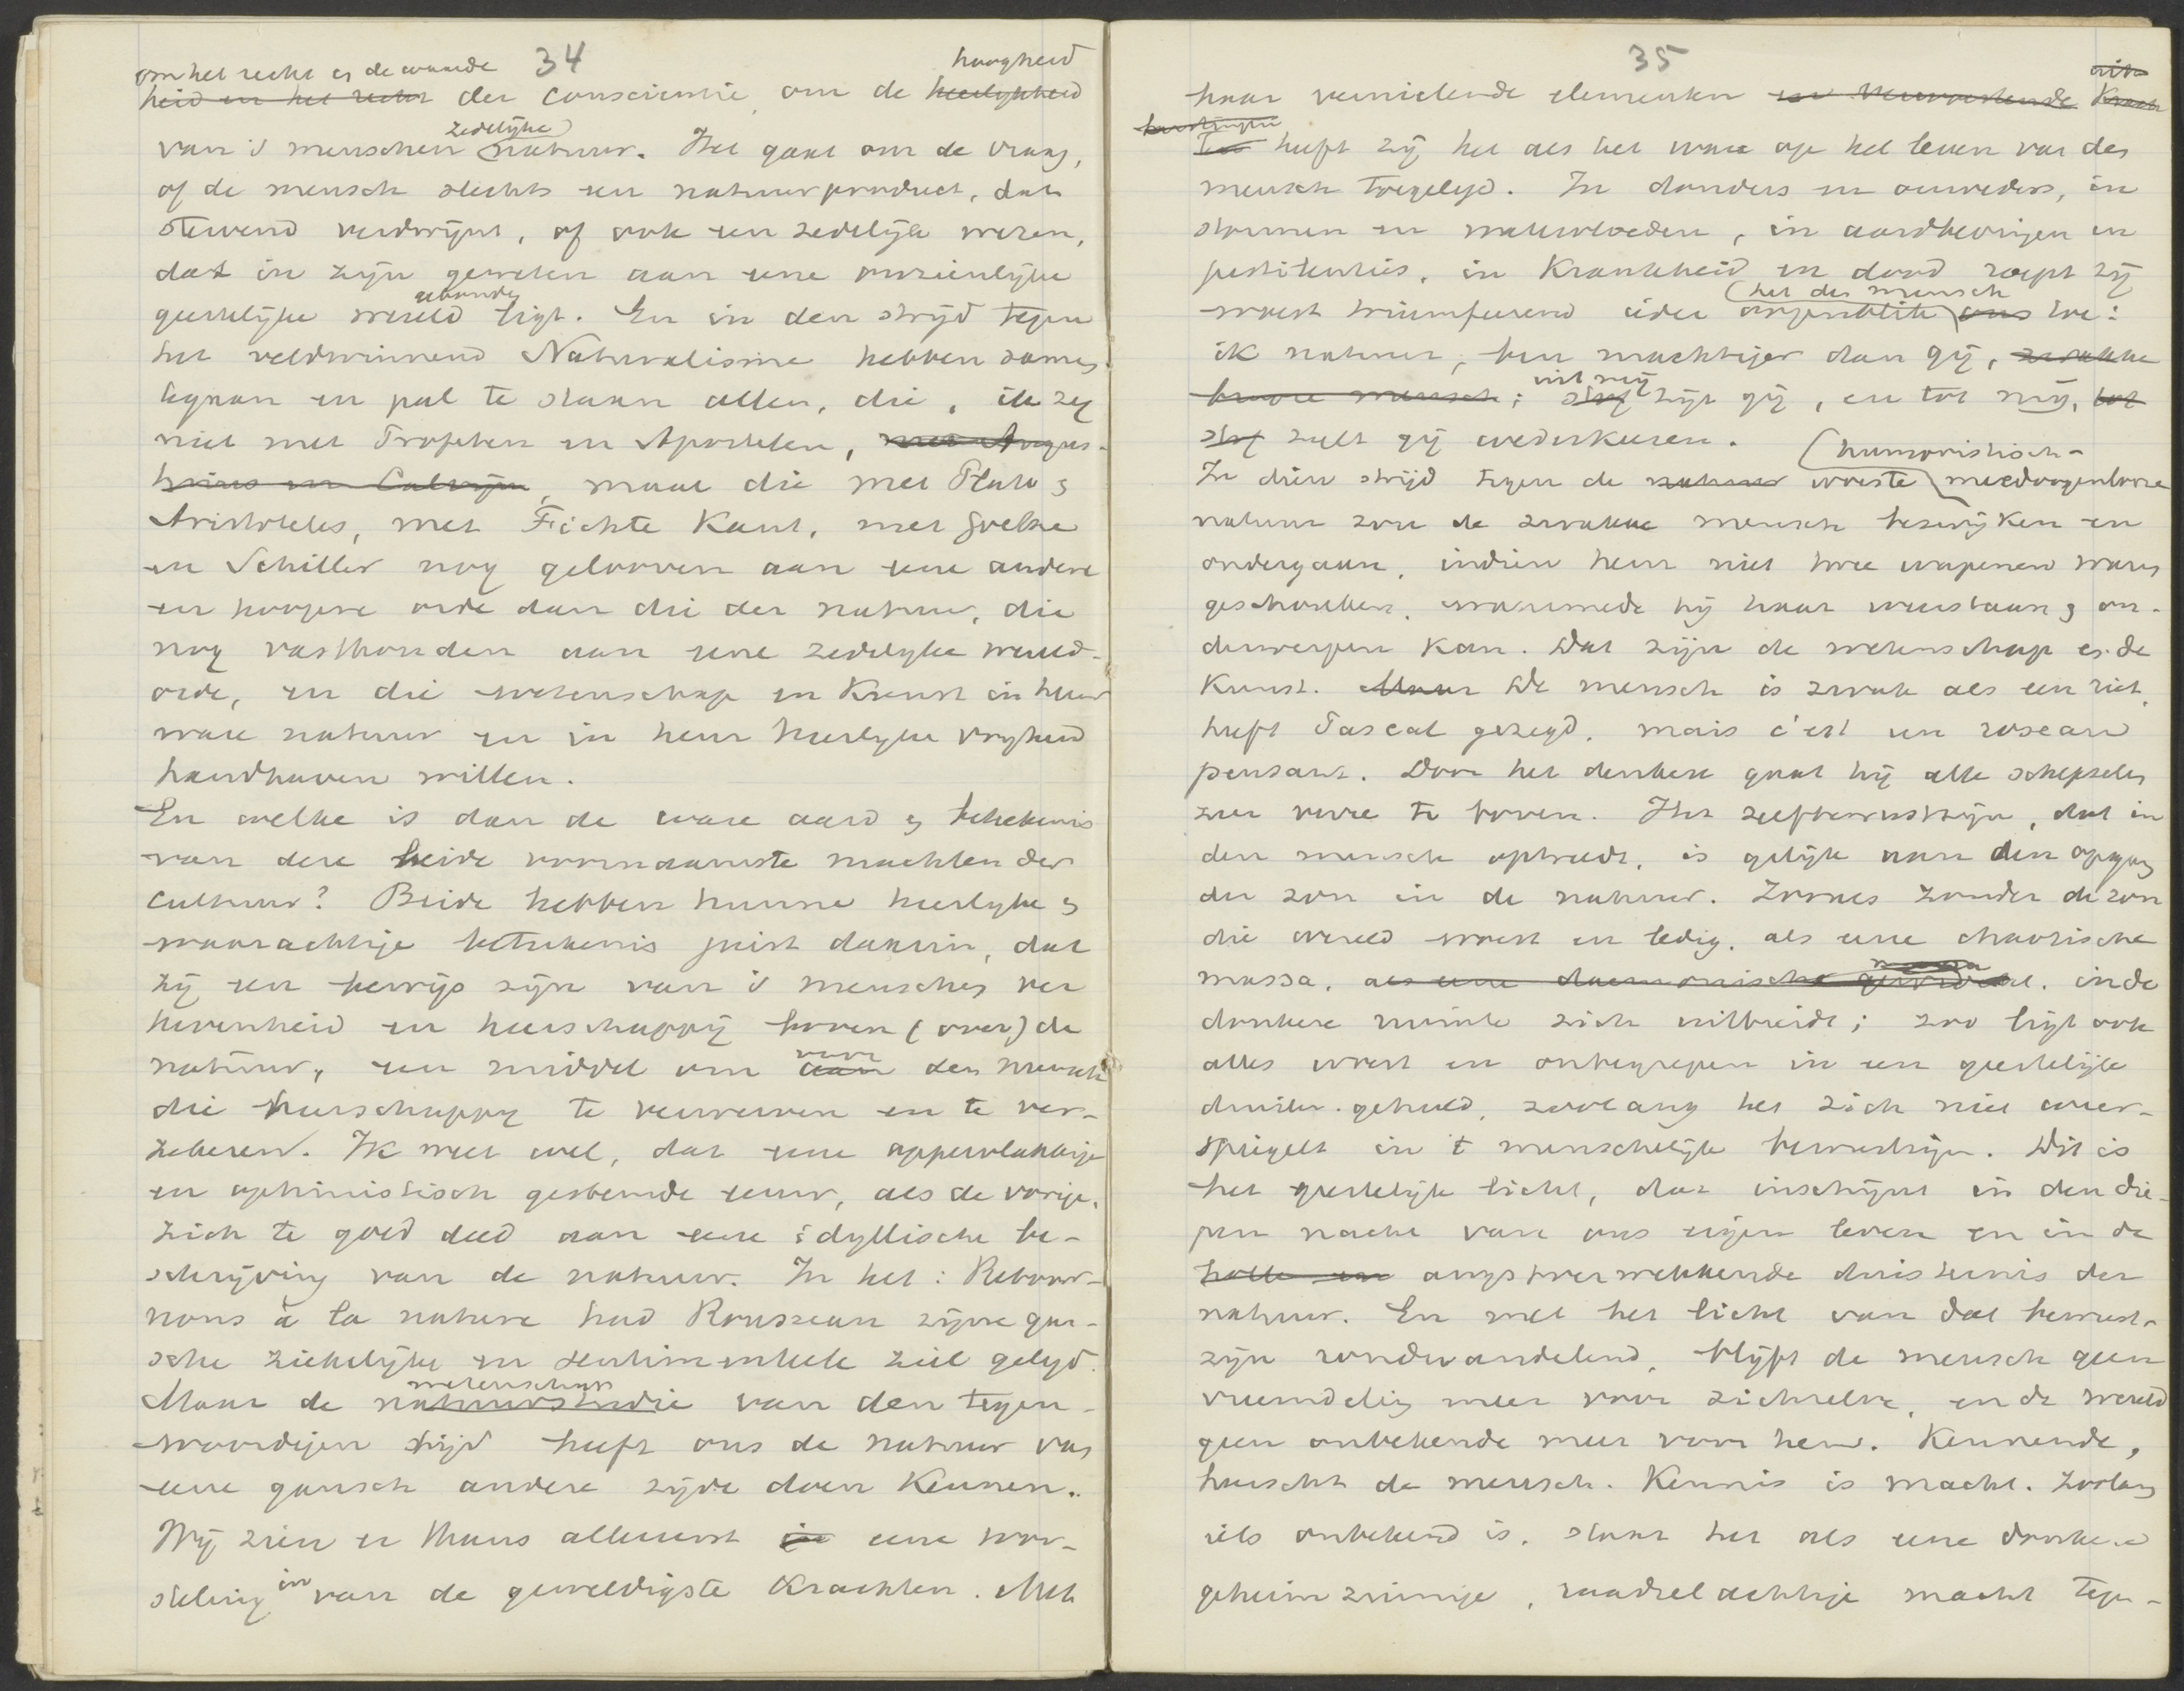 34
om het recht en de waarde hoogheid
heid en het recht der conscientie, om de heerlijkheid
zedelijke
van 's menschen natuur. Het gaat om de vraag,
of de mensch slechts een natuurproduct, dat
stervend verdwijnt, of ook een zedelijk wezen,
dat in zijn geweten aan eene onzienlijke
gebonden
geestelijke wereld ligt. En in den strijd tegen
het veldwinnend Naturalisme hebben samen
te gaan en pal te staan allen, die, ik zeg
niet met Profeten en Apostelen, met Augus-
tinus en Calvijn, maar die met Plato en
Aristoteles, met Fichte Kant, met Goethe
en Schiller nog gelooven aan eene andere
en hoogere orde dan die der natuur, die
nog vasthouden aan eene zedelijke wereld-
orde, en die wetenschap en Kunst in hun
ware natuur en in hun heerlijke vryheid
handhaven willen.
En welke is dan de ware aard en betekenis
van deze beide voornaamste machten der
cultuur? Beide hebben hunne heerlyke en
waarachtige betekenis juist daarin, dat
zij een bewijs zijn van 's menschen ver
hevenheid en heerschappij boven (over) de
voor
natuur, een middel om aan den mensch
die heerschappy te verwerven en te ver-
zekeren. Ik weet wel, dat eene oppervlakkige
en optimistisch gestemde eeuw, als de vorige,
zich te goed deed aan eene idyllische be-
schrijving van de natuur. In het: Retour-
nons à la nature had Rousseau zijne gan-
sche ziekelijke en sentimenteele ziel gelegd.
wetenschap
Maar de natuurstudie van den tegen-
woordigen tijd heeft ons de natuur van
eene gansch andere zijde doen Kennen.
Wij zien er thans alleereerst in eene wor-
steling in van de geweldigste Krachten. Met
35
haar vernielende elementen en verwoestende Krach
ten heeft zij het als het ware op het leven van den
mensch toegelegd. In donders en onweders, in
stormen en watervloeden, in aardbevingen en
pestilenties, in Krankheid en dood roept zij
het den mensch
woest triumfeerend ieder oogenblik ons toe:
ik natuur, ben machtiger dan gij, zwakke
uit mij
broze mensch; stof zijt gij, en tot mij, tot
stof zult gij wederkeeren.
humoristisch-
In dien strijd tegen de natuur woeste meedoogenlooze
natuur zou de zwakke mensch bezwijken en
ondergaan, indien hem niet twee wapenen waren
geschonken, waarmede hij haar weerstaan en on-
derwerpen kan. Dat zijn de wetenschap en de
Kunst. Maar De mensch is zwak als een riet,
heeft Pascal gezegd, mais c'est un roseau
pensant. Door het denken gaat hij alle schepselen
zeer verre te boven. Het zelfbewustzijn, dat in
den mensch optreedt, is gelijk aan den opgang
der zon in de natuur. Zooals zonder de zon
die wereld woest en ledig, als eene chaotische
massa, als eene daemonische in de
donkere ruimte zich uitbreidt; zoo ligt ook
alles woest en onbegrepen in een geestelijk
duister gehuld, zoolang het zich niet weer-
spiegelt in 't menschelijk bewustzijn. Dit is
het geestelijk licht, dat inschijnt in den die-
pen nacht van ons eigen leven en in de
holle en angstverwekkende duisternis der
natuur. En met het licht van dat bewust-
zijn rondwandelend, blijft de mensch geen
vreemdeling meer voor zichzelve, en de wereld
geen onbekende meer voor hem. Kennende,
heerscht de mensch. Kennis is macht. Zoolang
iets onbekend is, staat het als eene donkere
geheimzinnige, raadselachtige macht tegen-